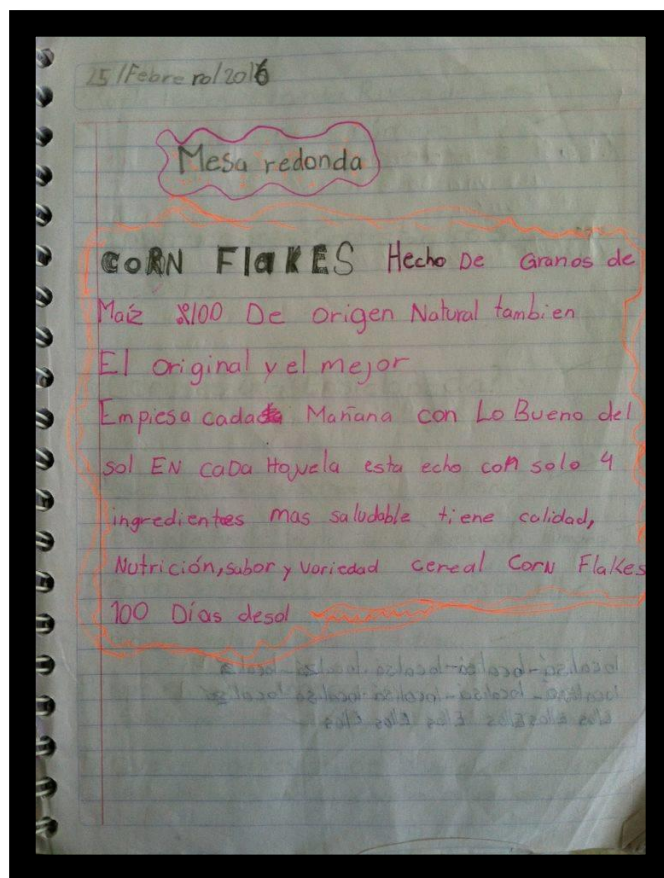 25/Febrero/2016
Mesa redonda
CORN FlaKES Hecho De Granos de
Maíz %100 De origen Natural tambien
El original y el mejor
Empiesa cada Mañana con Lo Bueno del
sol EN caDa Hojuela esta echo con solo 4
ingredientes mas saludable tiene calidad,
Nutrición, sabor y variedad cereal Corn Flakes
100 Días desol